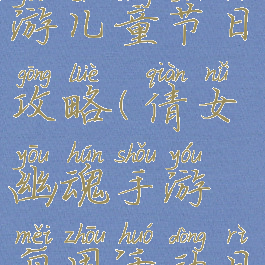 游儿童节日
gōng lüè qiàn nǚ
攻略(倩女
yōu hún shǒu yóu
幽魂手游
měi zhōu huó dòng rì
每周活动日